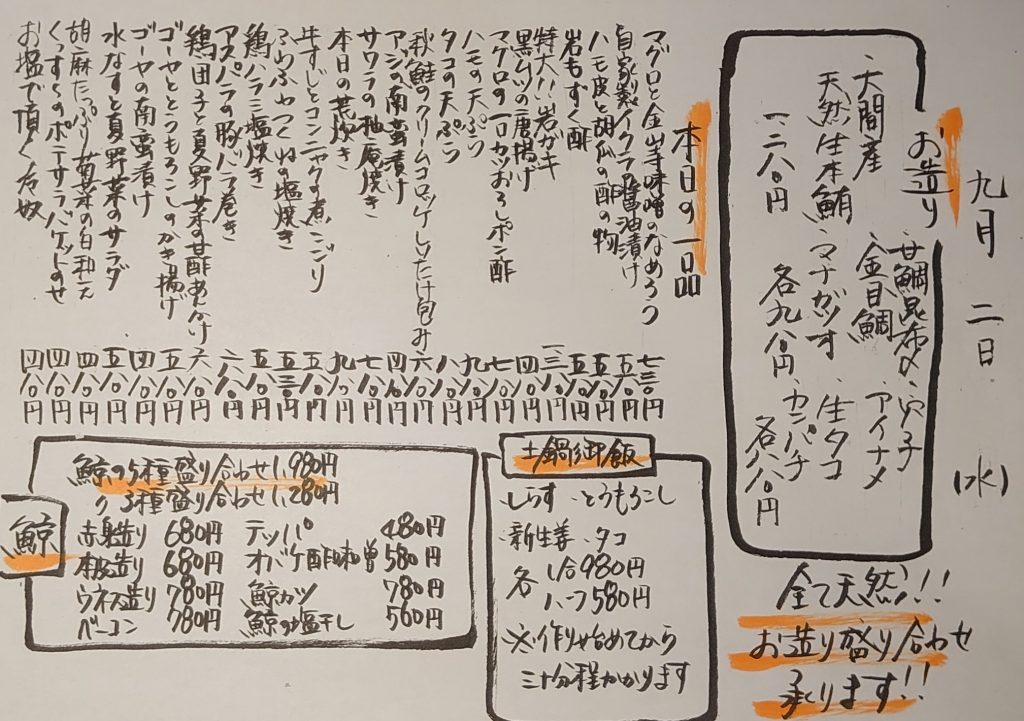 九月二日(水)
お造り
・甘鯛昆布〆 ・穴子
・金目鯛 ・アイナメ
・大間産 ・マナガツオ ・生タコ
天然生本鮪 ・カンパチ
一二八〇円 各九八〇円 各八八〇円
全て天然!!
お造り盛り合わせ
承ります!!
本日の一品
マグロと金山寺味噌のなめろう 七三〇円
自家製イクラの醤油漬け 五八〇円
ハモ皮と胡瓜の酢の物 五八〇円
岩もずく酢 五八〇円
特大!!岩ガキ
黒ムツの唐揚げ
マグロの一口カツおろしポン酢
ハモの天ぷら
タコの天ぷら
秋鮭のクリームコロッケしいたけ包み
アジの南蛮漬け
サワラの柚庵焼き
本日の荒炊き
牛すじとコンニャクの煮こごり
ふらふわつくねの塩焼き
鶏ハラミ塩焼き
アスパラの豚バラ巻き
鶏団子と夏野菜の甘酢あんかけ
ゴーヤととうもろこしのかき揚げ
ゴーヤの南蛮漬け
水なすと夏野菜のサラダ
胡麻たっぷり菊菜の白和え
くんすものポテサラバゲットのせ
お塩で頂く冷奴 四八〇円
土鍋御飯
・しらす ・とうもろこし
・新生姜 ・タコ
各 1合980円
ハーフ580円
※作り始めてから
三十分程かかります
鯨
鯨の5種盛り合わせ1,980円
〃 3種盛り合わせ1,280円
赤身造り 680円 テッパ 480円
本皮造り 680円 オバケ酢味噌 580円
ウネス造り 780円 鯨カツ 780円
ベーコン 780円 鯨の塩干し 560円